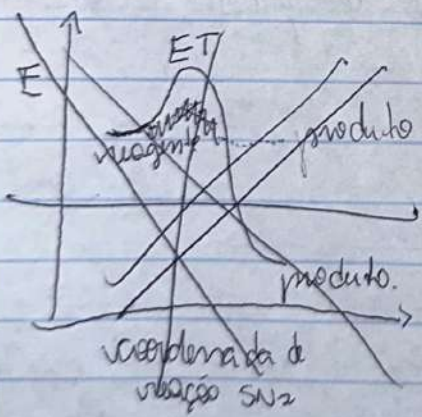 E
ET
reagente
produto
produto.
coordenada de
reação SN2